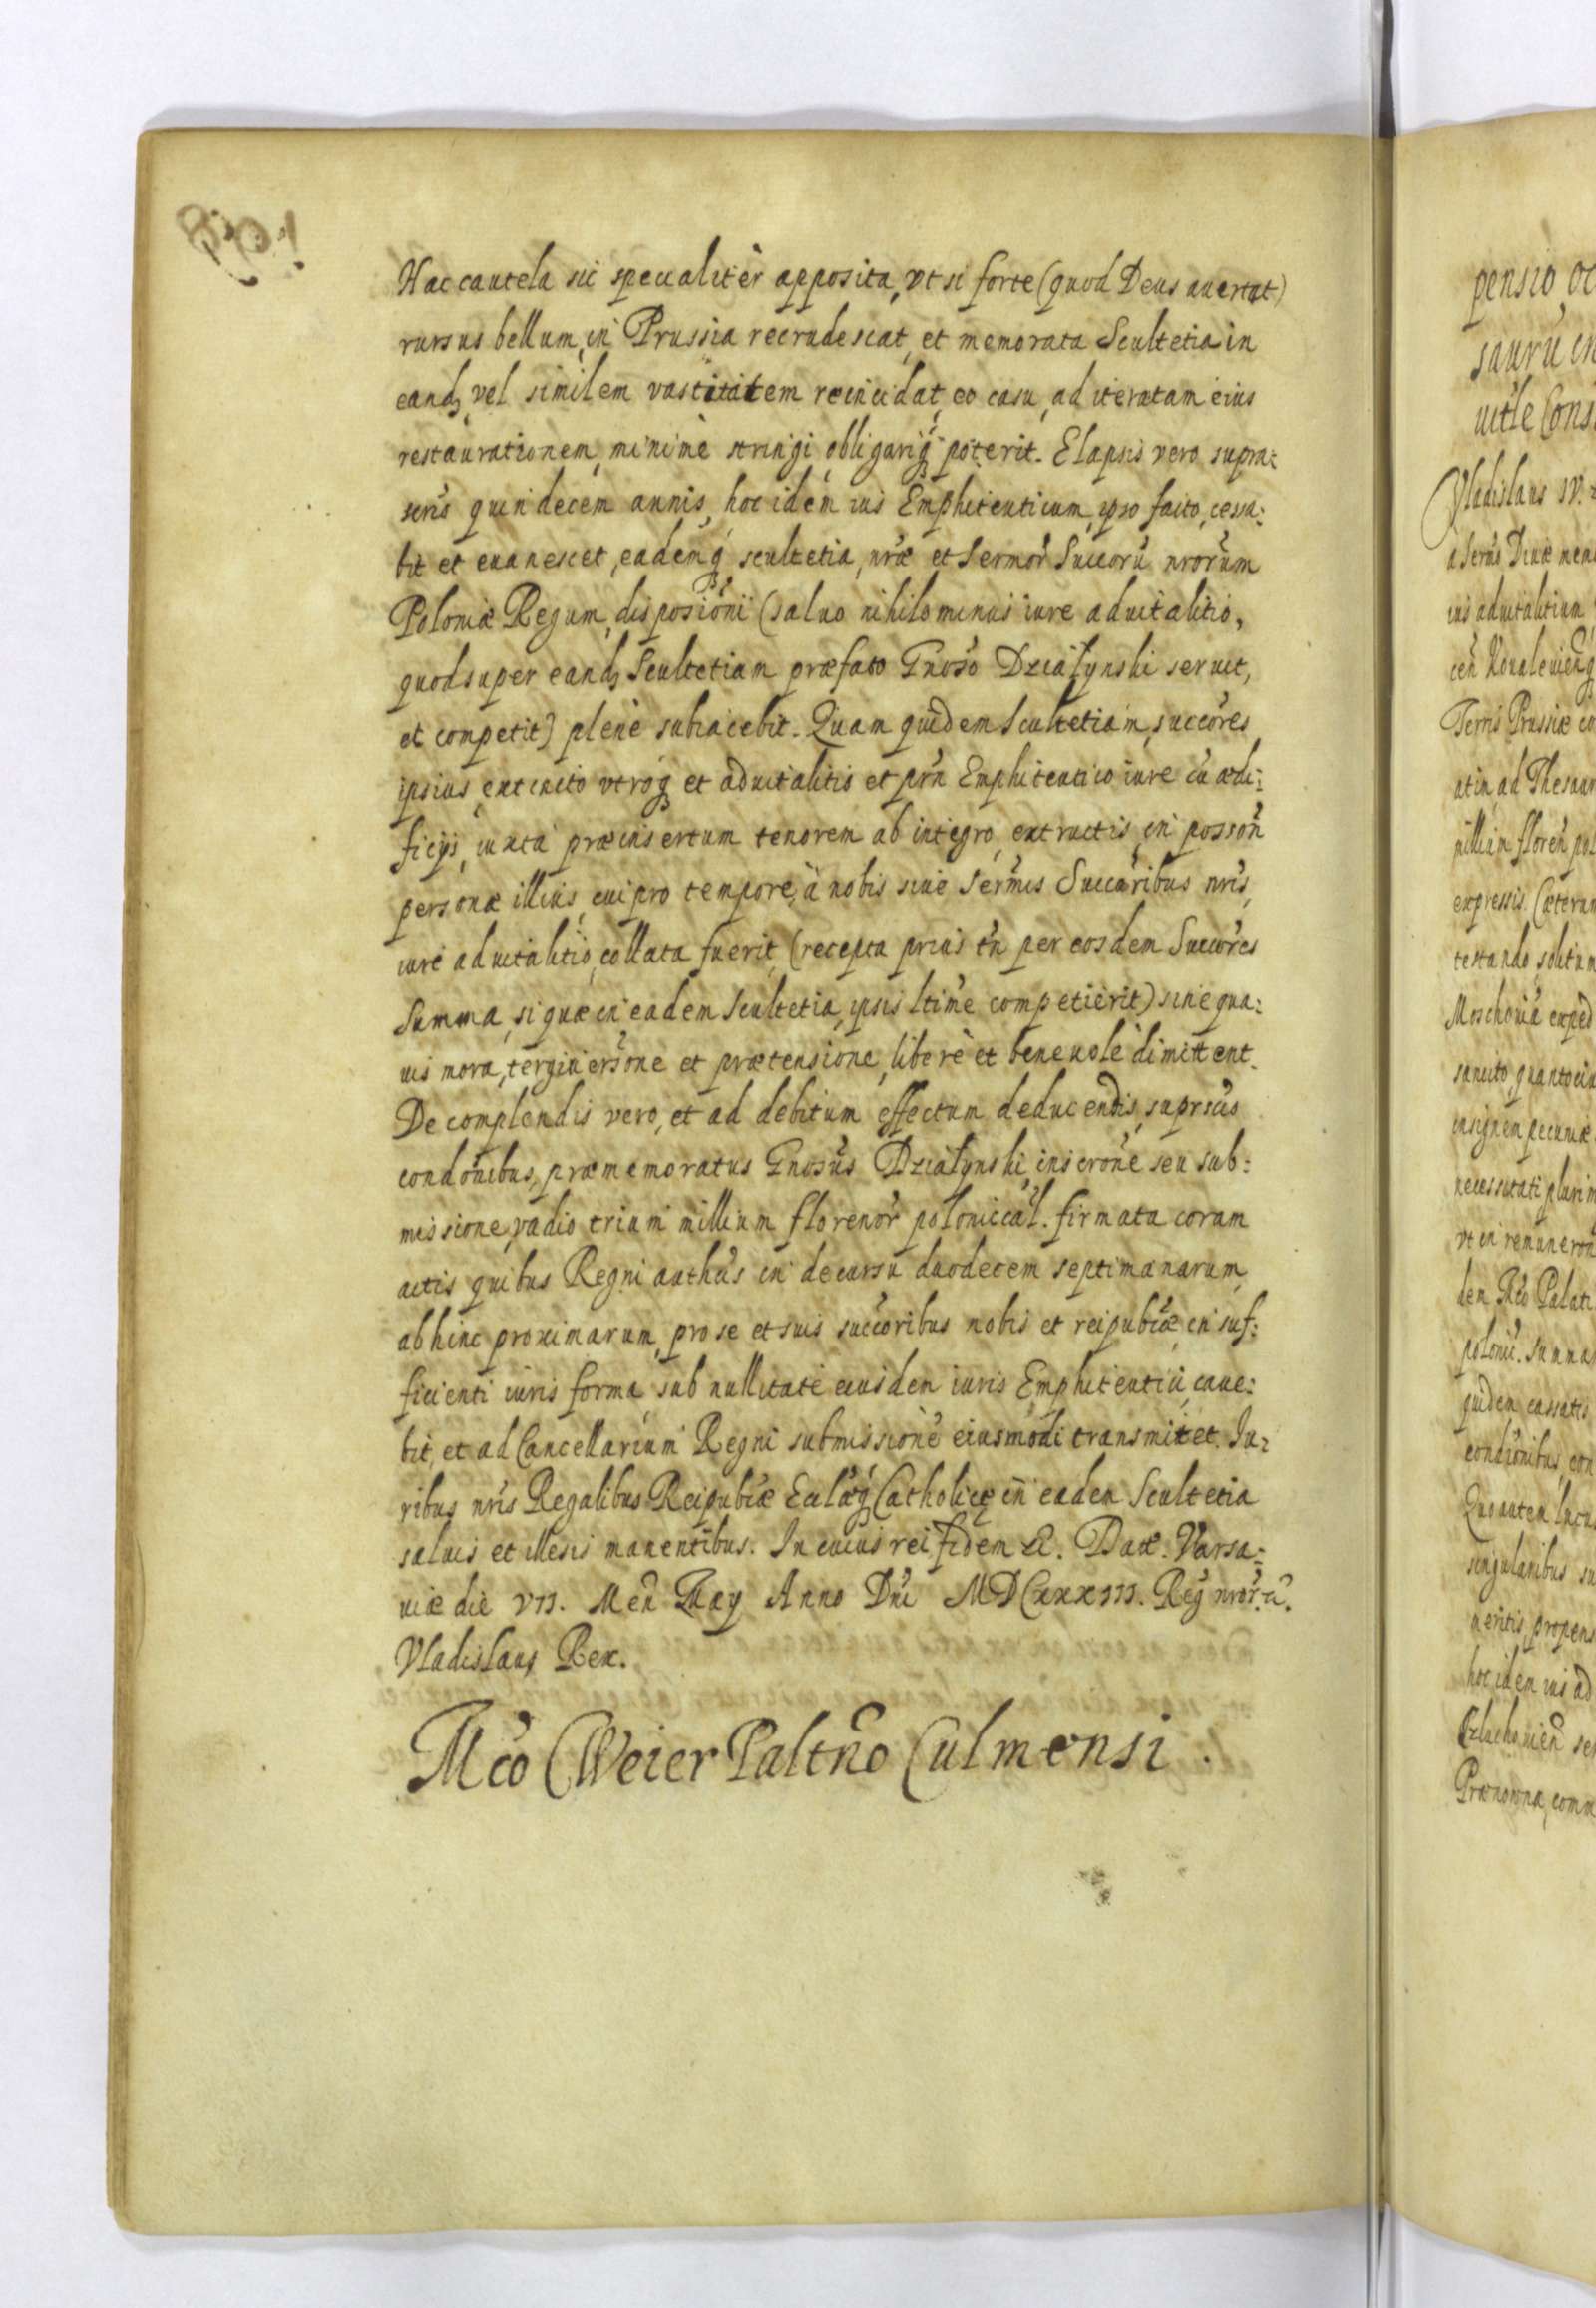 Hac cautela sic specialiter apposita, vt si forte (quod Deus auertat)
rursus bellum, in Prussia recrudescat, et memorata Scultetia in
eandꝫ vel similem vastitatem reincidat, eo casu, ad iteratam eius
restaurationem, minimè stringi obligariqꝫ poterit. Elapsis vero supra:
scris quindecem annis, hoc idem ius Emphiteuticum, ipso facto, cessa:
bit et euanescet, eademqꝫ scultetia, nrae et Sermor Succoru nrorum
Poloniæ Regum, disposioni (saluo nihilominus iure aduitalitio,
quod super eandꝫ Scultetiam præfato Gnoso Działynski seruit,
et competit) plenè subiacebit. Quam quidem Scultetiam, succores
ipsius, extincto vtroqꝫ et aduitalitio et prn Emphiteutico iure cu ædi:
ficijs, iuxta præinsertum tenorem ab integro, extructis, in posson
personæ illius, cui pro tempore, à nobis siue Sermis Succoribus nris,
iure aduitalitio, collata fuerit, (recepta prius tn per eosdem Succores
Summa, si quæ in eadem Scultetia, ipsis ltime competierit) sine qua:
uis mora, tergiuersone et prætensione, liberè et beneuolè dimittent.
De complendis vero, et ad debitum effectum deducendis, suprscis
condonibus, præmemoratus Gnosus Działynski, inscrone seu sub:
missione, vadio trium millium florenor poloniccal. firmata coram
actis quibus Regni authcis in decursu duodecem septimanarum,
abhinc proximarum, pro se et suis succoribus nobis et reipublicæ, in suf:
ficienti iuris forma, sub nullitate eiusdem iuris Emphiteutici, caue:
bit, et ad Cancellariam Regni submissione eiusmodi transmitet. Iu:
ribus nris Regalibus Reipubcæ Ecclæqꝫ Catholicæ in eadem Scultetia
saluis et illesis manentibus. In cuius rei fidem &. Dat. Varsa:
uiæ die VII. Men May Anno Dni MDCXXXIII. Reg nror. &.
Vladislaus Rex.
Mco Weier Paltno Culmensi.
pensio
Vladislaus IV.
Terris Prussiæ
atim, ad Thesaur
expressis. Cæterum
testando, solitum
Moschouia exped
sancito, quanto
insignem pecuniæ
necessitati plurim
den Mco Palati
polonic. summa
quidem cassatis
condionibus, con
Quo autem
singularibus su
meritis, propens
hoc idem ius ad